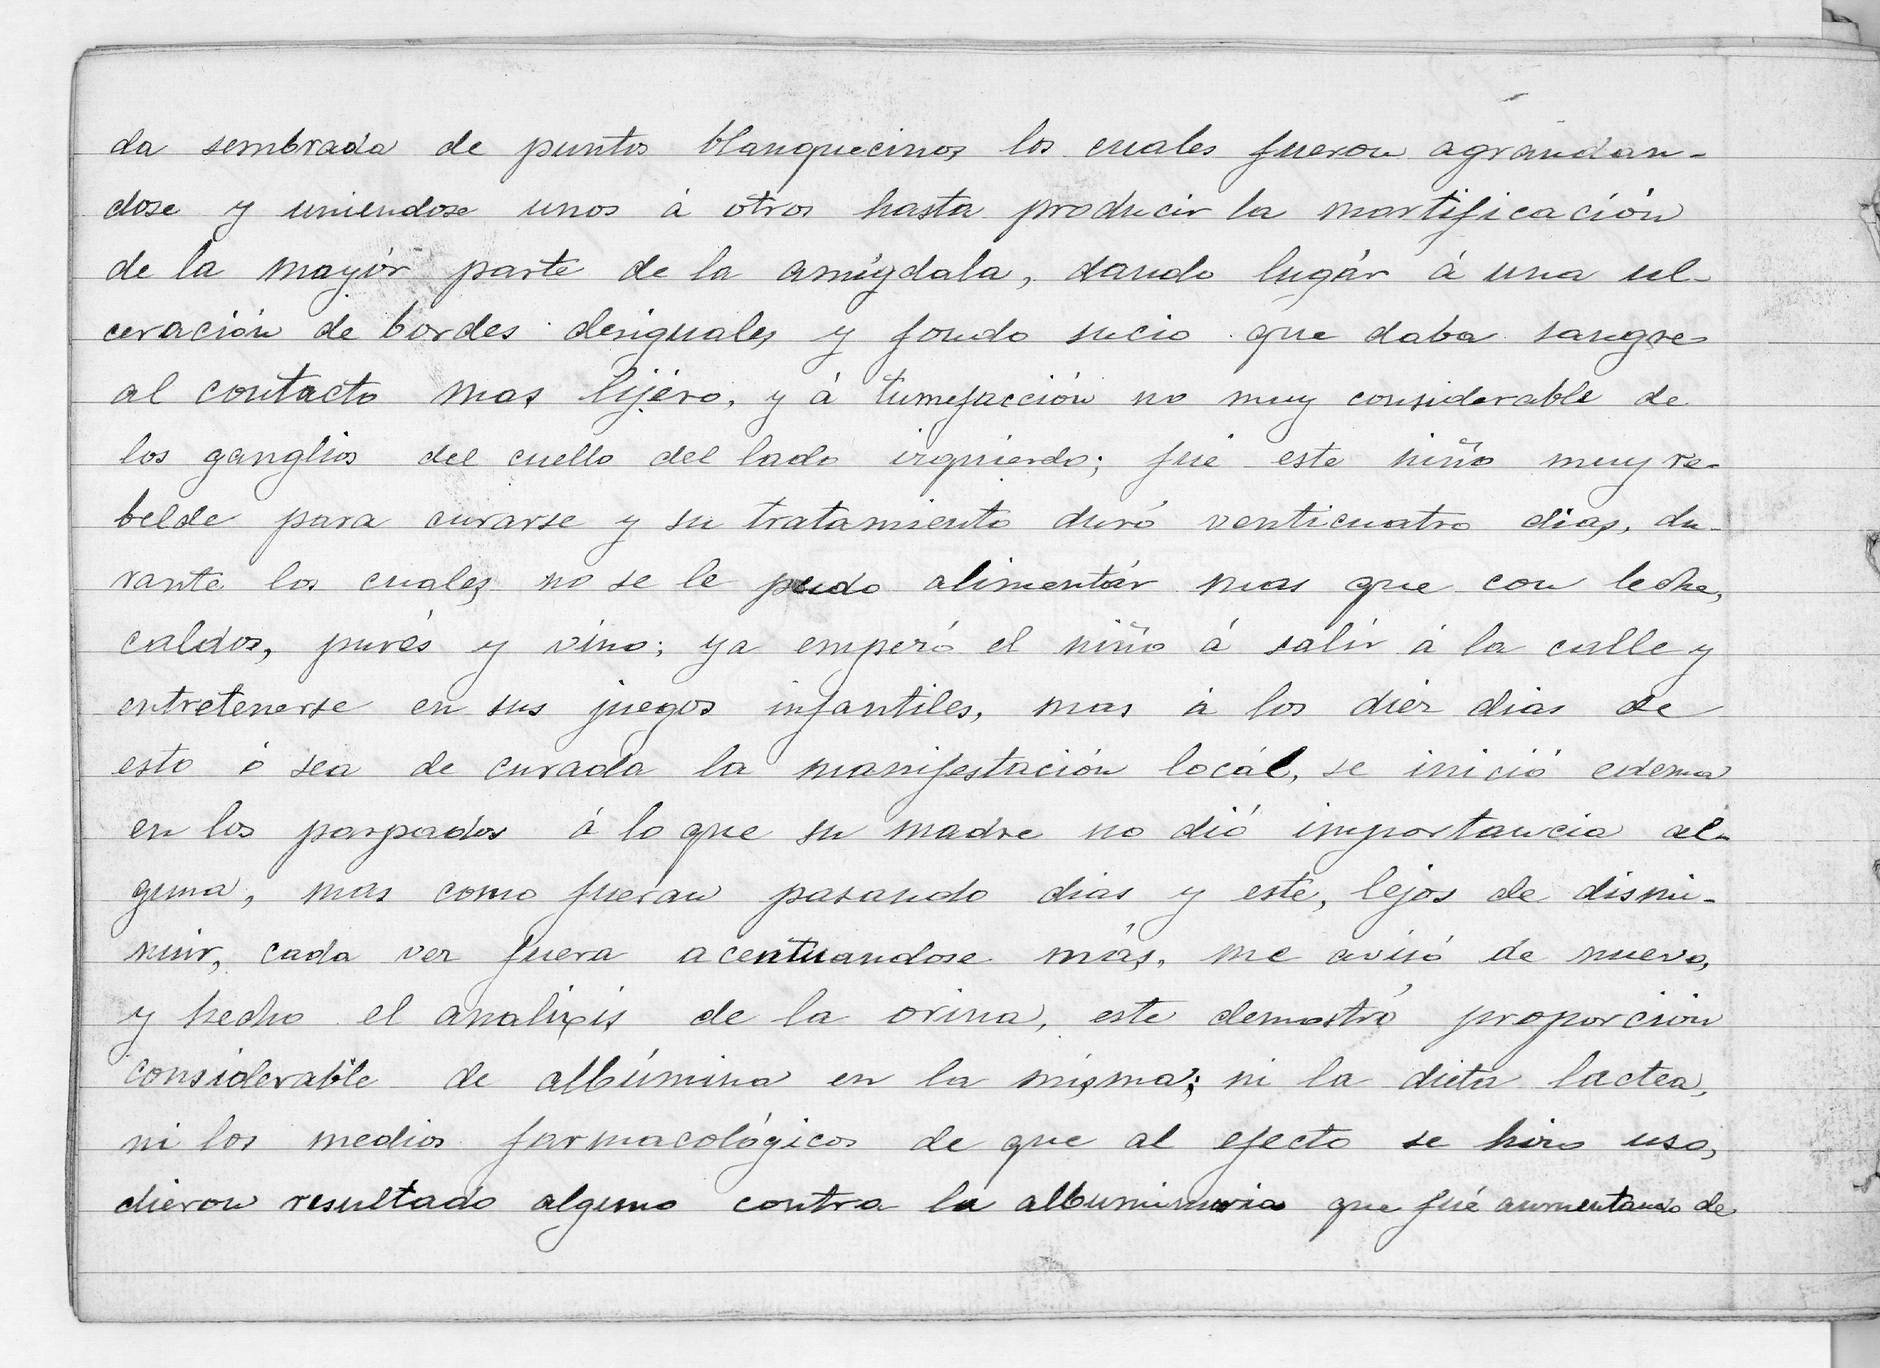 da sembrada de puntos blanquecinos los cuales fueron agrandan-
dose y uniendose unos á otros hasta producir la mortificación
de la mayór parte de la amígdala, dando lugár á una ul-
ceración de bordes desiguales y fondo sucio que daba sangre
al contacto mas lijéro, y á tumefacción no muy considerable de
los ganglios del cuello del lado izquierdo; fué este niño muy re-
belde para curarse y su tratamiento duró venticuatro dias, du-
rante los cuales no se le pudo alimentár mas que con leche,
caldos, purés y vino; ya empezó el niño á salír á la calle y
entretenerse en sus juegos infantiles, mas á los diéz dias de
esto ó sea de curada la manifestación locál, se inició edema
en los parpados á lo que su madre no dió importancia al-
guna, mas como fueran pasando dias y este, lejos de dismi-
nuir, cada vez fuera acentuandose más, me avisó de nuevo,
y hecho el analisis de la orina, este demostró proporción
considerable de albúmina en la misma; ni la dieta lactea,
ni los medios farmacológicos de que al efecto se hizo uso,
dieron resultado alguno contra la albuminuria que fué aumentando de